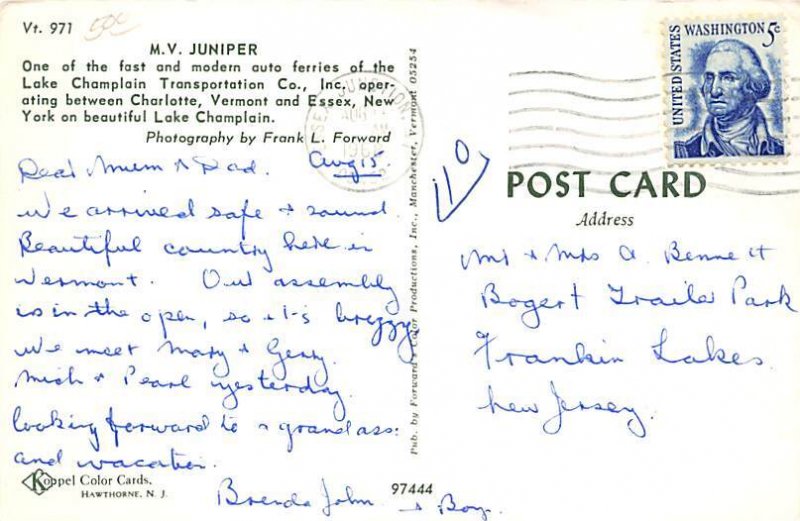 Vt. 971
500
M.V. JUNIPER
One of the fast and modern auto ferries of the
Lake Champlain Transportation Co., Inc. oper-
ating between Charlotte, Vermont and Essex, New
York on beautiful Lake Champlain.
Photography by Frank L. Forward
Dear Mum & Dad. Aug 15
We arrived safe & sound.
Beautiful country here in
Vermont. Our assembly
is in the open, so it-s brezzy
We meet Mary & Gerry.
Mich & Pearl yesterday.
looking forward to a grand ass:
and vacation.
Brenda John & Boy.
Koppel Color Cards.
HAWTHORNE, N. J.
97444
Pub. by Forward's Color Productions, Inc., Manchester, Vermont 05254
JUNCTION
AUG
UNITED STATES
WASHINGTON 5c
110
POST CARD
Address
Mr & Mrs A. Bennett
Bogert Trailer Park
Frankin Lakes.
New Jersey.